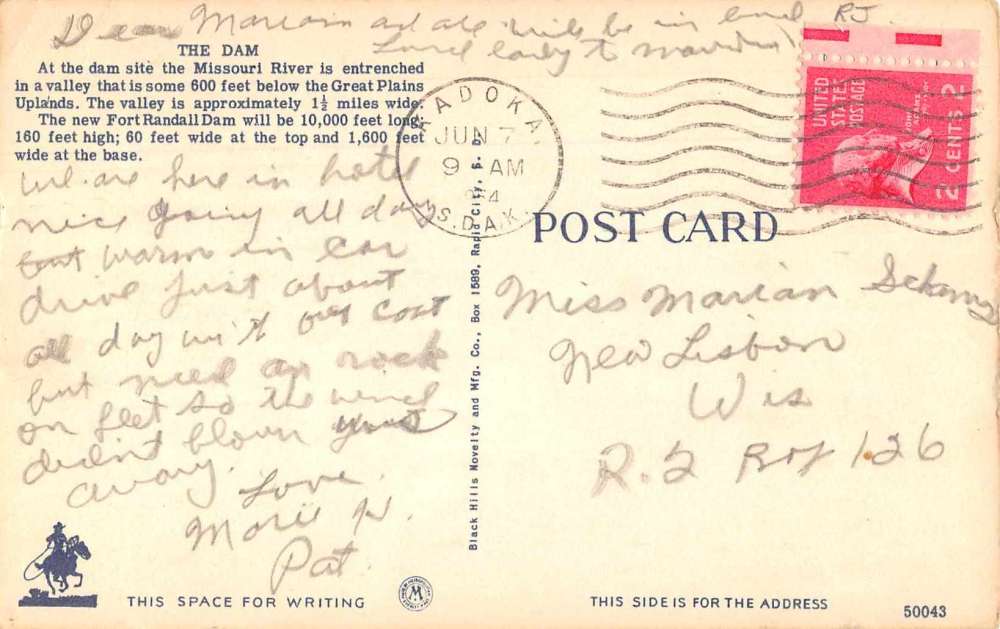 Dear Marian and all will be in
RJ
THE DAM
At the dam site the Missouri River is entrenched
in a valley that is some 600 feet below the Great Plains
Uplands. The valley is approximately 1½ miles wide.
The new Fort Randall Dam will be 10,000 feet long;
160 feet high; 60 feet wide at the top and 1,600 feet
wide at the base.
We are here in hotel
nice going all day
but warm in car
drive just about
all day with out coat
but need a rock
on feet so the wind
didn't blow
away.
Love
Marie H.
Pat
THIS SPACE FOR WRITING
Black Hills Novelty and Mfg. Co., Box 1589, Rapid City, S. D.
KADOKA
JUN 7
9 AM
S. DAK.
UNITED
STATES
POSTAGE
2 CENTS 2
POST CARD
Miss Marian
New Lisbon
Wis
R.2 Box 126
THIS SIDE IS FOR THE ADDRESS
50043